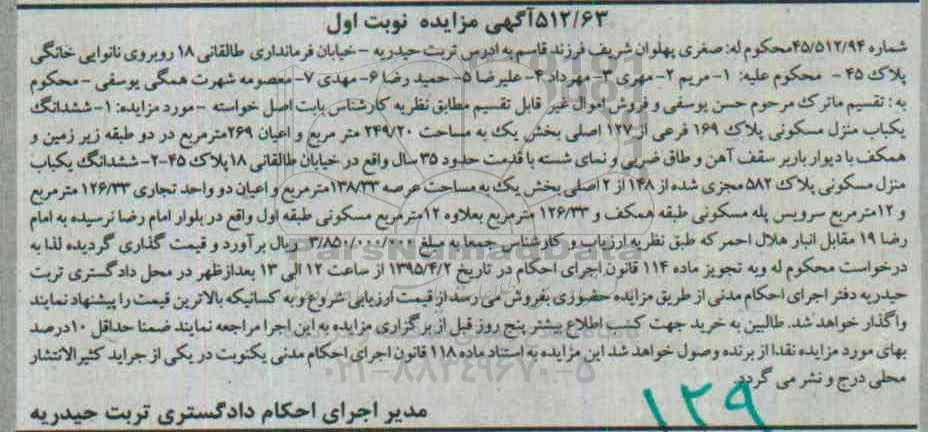 ۵۱۲/۶۳آگهی مزایده نوبت اول
شماره ۴۵/۵۱۲/۹۴محکوم له: صغری پهلوان شریف فرزند قاسم به ادرس تربت حیدریه - خیابان فرمانداری طالقانی ۱۸ روبروی نانوایی خانگی
پلاک ۴۵ - محکوم علیه: ۱- مریم ۲- مهری ۳- مهرداد ۴- علیرضا ۵- حمید رضا ۶- مهدی ۷- معصومه شهرت همگی یوسفی - محکوم
به: تقسیم ماترک مرحوم حسن یوسفی و فروش اموال غیر قابل تقسیم مطابق نظریه کارشناس بابت اصل خواسته - مورد مزایده: ۱- ششدانگ
یکباب منزل مسکونی پلاک ۱۶۹ فرعی از ۱۲۷ اصلی بخش یک به مساحت ۲۴۹/۲۰ متر مربع و اعیان ۲۶۹مترمربع در دو طبقه زیر زمین و
همکف با دیوار باربر سقف آهن و طاق ضربی و نمای شسته با قدمت حدود ۳۵ سال واقع در خیابان طالقانی ۱۸پلاک ۴۵-۲- ششدانگ یکباب
منزل مسکونی پلاک ۵۸۲ مجزی شده از ۱۴۸ از ۲ اصلی بخش یک به مساحت عرصه ۱۳۸/۳۳مترمربع و اعیان دو واحد تجاری ۱۲۶/۳۳ مترمربع
و ۱۲مترمربع سرویس پله مسکونی طبقه همکف و ۱۲۶/۳۳ مترمربع بعلاوه ۱۲مترمربع مسکونی طبقه اول واقع در بلوار امام رضا نرسیده به امام
رضا ۱۹ مقابل انبار هلال احمر که طبق نظریه ارزیاب و کارشناس جمعا به مبلغ ۳/۸۵۰/۰۰۰/۰۰۰ ریال برآورد و قیمت گذاری گردیده لذا به
درخواست محکوم له وبه تجویز ماده ۱۱۴ قانون اجرای احکام در تاریخ ۱۳۹۵/۴/۲ از ساعت ۱۲ الی ۱۳ بعدازظهر در محل دادگستری تربت
حیدریه دفتر اجرای احکام مدنی از طریق مزایده حضوری بفروش می رسد از قیمت ارزیابی شروع و به کسانیکه بالاترین قیمت را پیشنهاد نمایند
واگذار خواهد شد. طالبین به خرید جهت کسب اطلاع بیشتر پنج روز قبل از برگزاری مزایده به این اجرا مراجعه نمایند ضمنا حداقل ۱۰درصد
بهای مورد مزایده نقدا از برنده وصول خواهد شد این مزایده به استناد ماده ۱۱۸ قانون اجرای احکام مدنی یکنوبت در یکی از جراید کثیرالانتشار
محلی درج و نشر می گردد.
مدیر اجرای احکام دادگستری تربت حیدریه
۱۲۹
ParsNamadData
۰۲۱-۸۸۳۴۹۶۷۰-۵